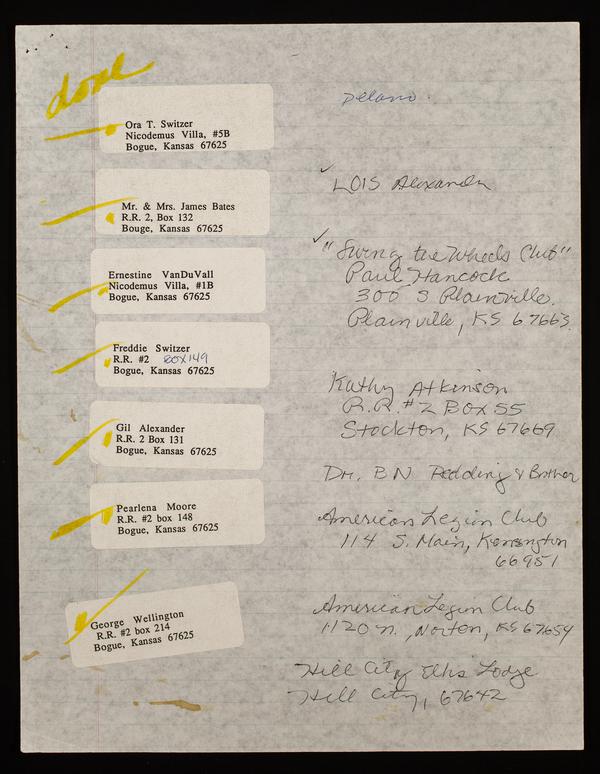 done
Ora T. Switzer
Nicodemus Villa, #5B
Bogue, Kansas 67625
Mr. & Mrs. James Bates
R.R. 2, Box 132
Bouge, Kansas 67625
Ernestine VanDuVall
Nicodemus Villa, #1B
Bogue, Kansas 67625
Freddie Switzer
R.R. #2 BOX 149
Bogue, Kansas 67625
Gil Alexander
R.R. 2 Box 131
Bogue, Kansas 67625
Pearlena Moore
R.R. #2 box 148
Bogue, Kansas 67625
George Wellington
R.R. #2 box 214
Bogue, Kansas 67625
Delano.
✓ LOIS Alexander
✓ "Swing the Wheels Club"
Paul Hancock
300 S Plainville.
Plainville, KS 67663
Kathy Atkinson
R.R. #2 Box 55
Stockton, KS 67669
Dr. BN Redding & Brother
American Legion Club
114 S. Main, Kensington
66951
American Legion Club
1120 n., Norton, KS 67654
Hill City Elks Lodge
Hill City, 67642